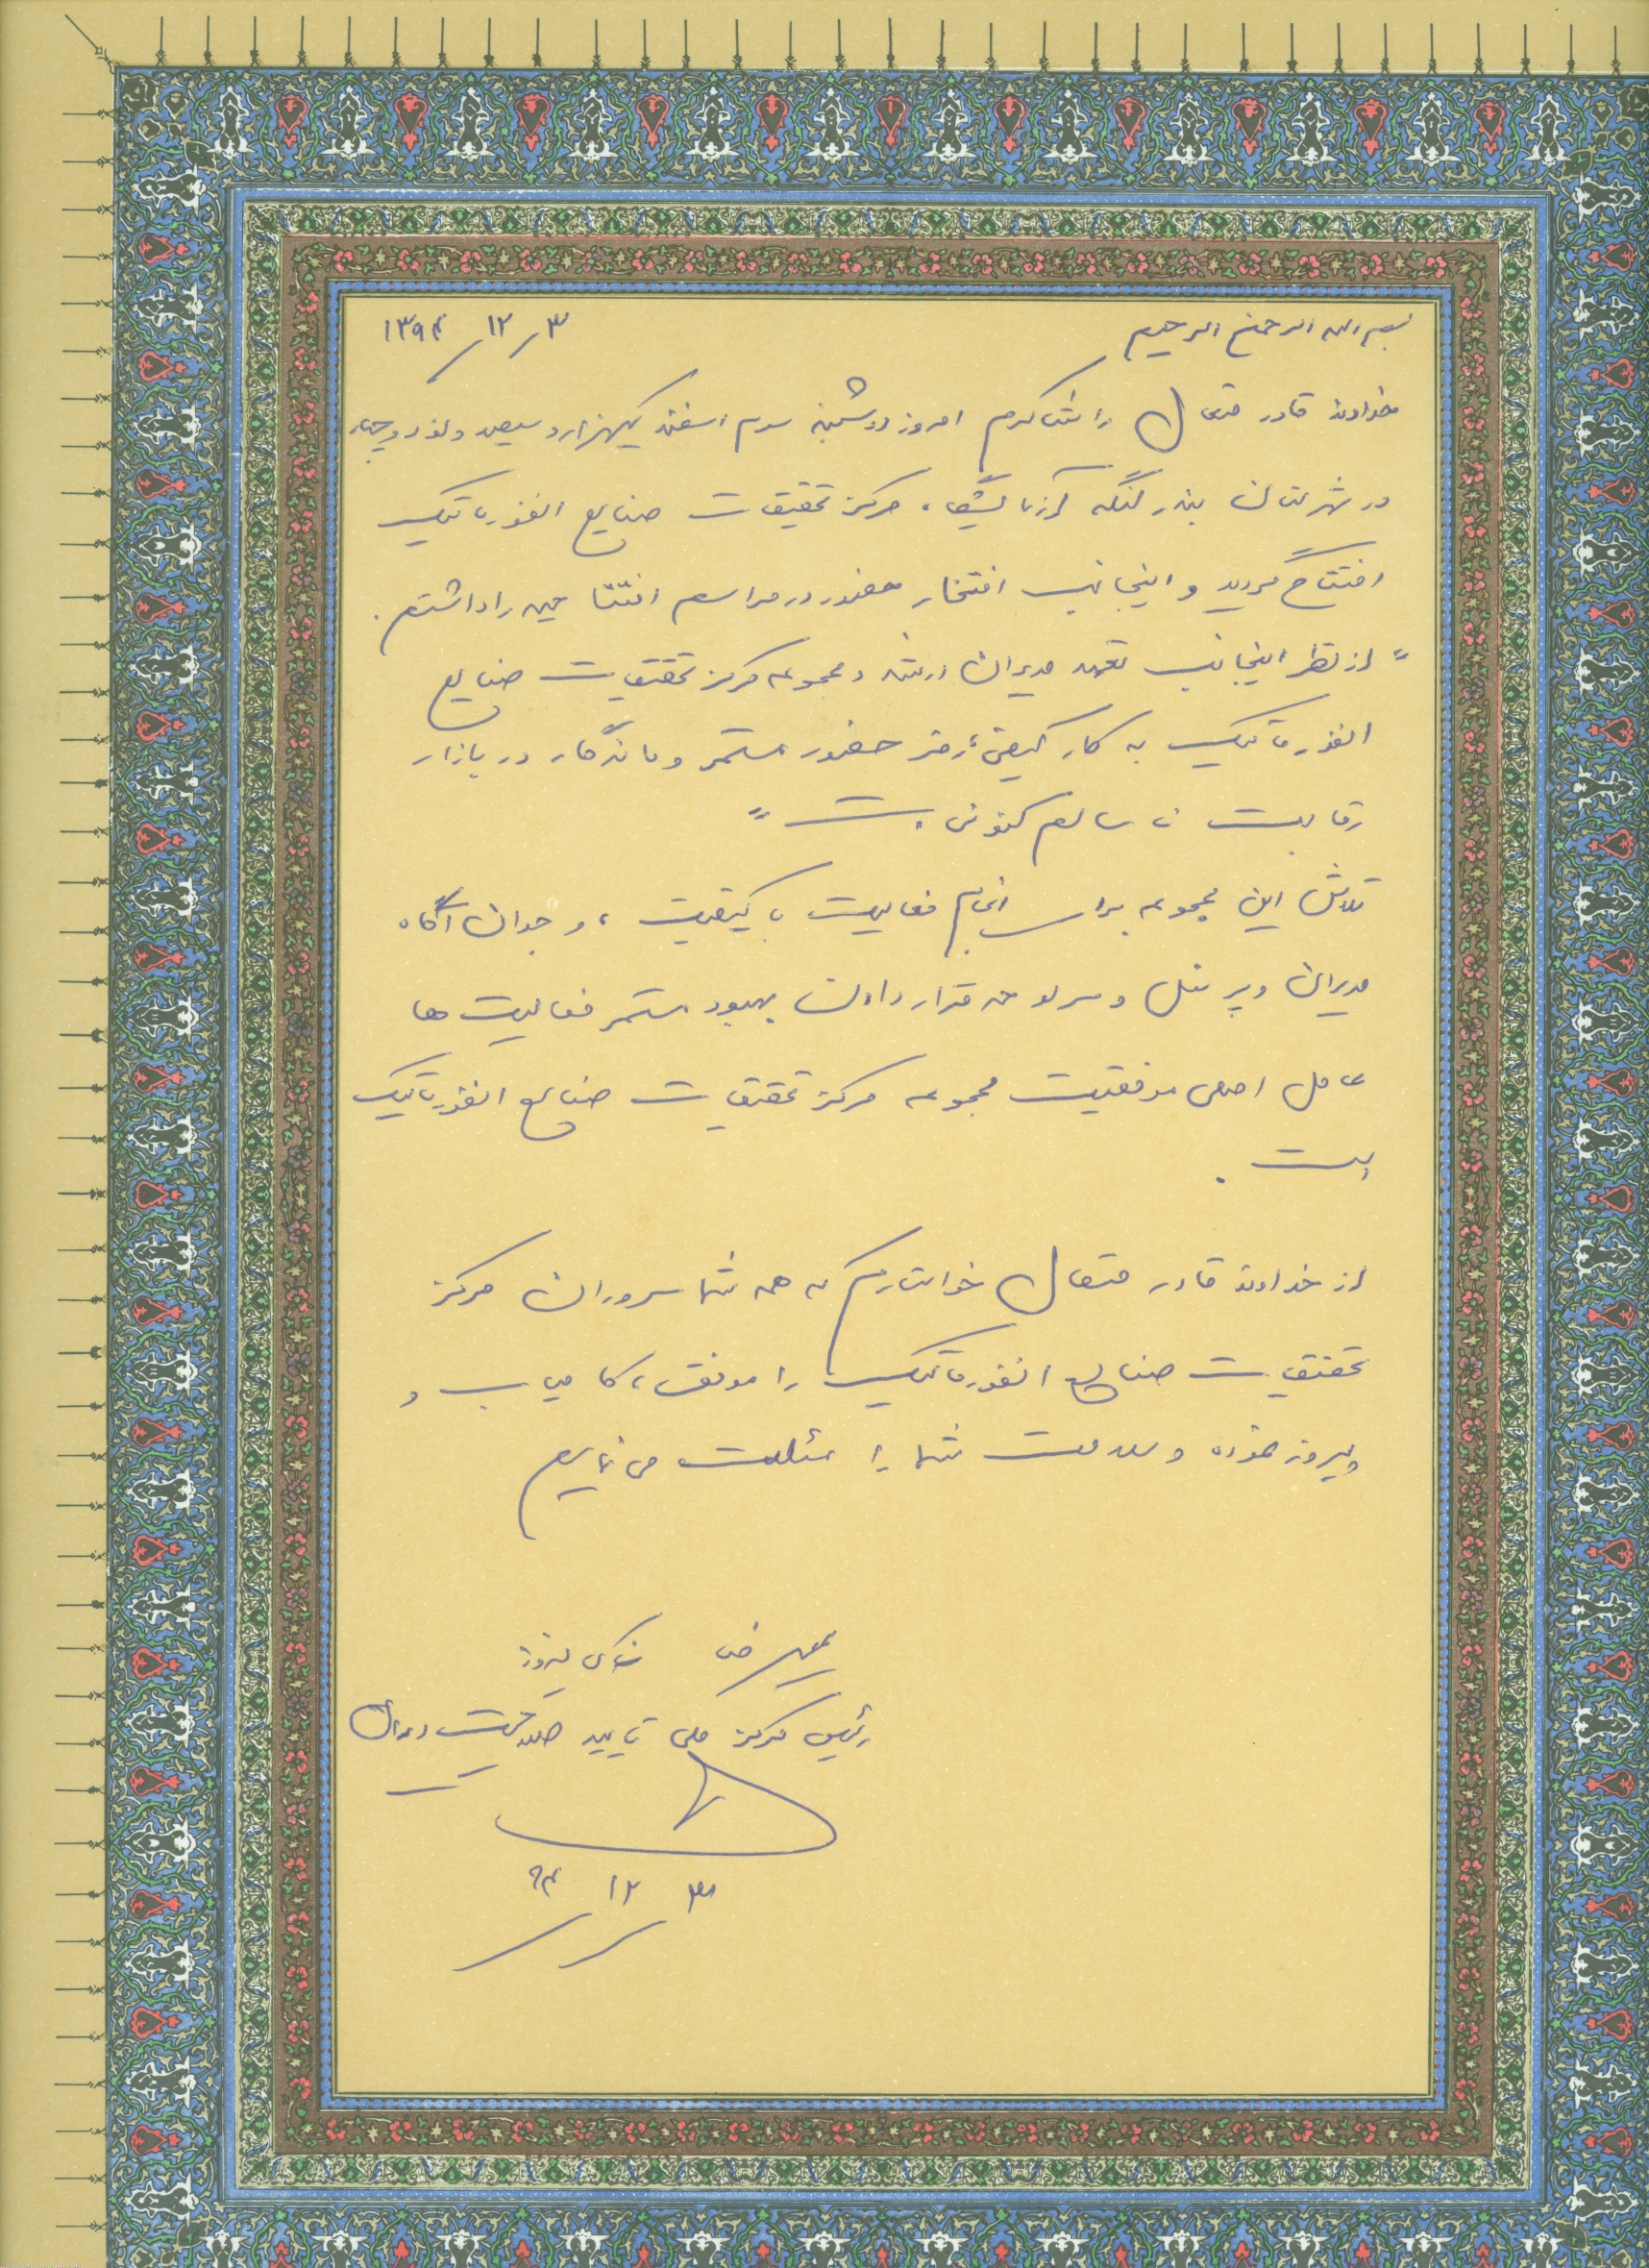 بسم الله الرحمن الرحیم
۱۳۹۴/۱۲/۳
خداوند قادر متعال را شاکرم امروز دوشنبه سوم اسفند یکهزار و سیصد و نود و چهار
در شهرستان بندر لنگه آزمایشگاه مرکز تحقیقات صنایع انفورماتیک
افتتاح گردید و اینجانب افتخار حضور در مراسم افتتاحیه را داشتم.
" از نظر اینجانب تعهد مدیران ارشد و مجموعه مرکز تحقیقات صنایع
انفورماتیک به کار کیفی، رمز حضور مستمر و ماندگار در بازار
رقابت ناسالم کنونی است "
تلاش این مجموعه برای انجام فعالیت با کیفیت، وجدان آگاه
مدیران و پرسنل و سرلوحه قرار دادن بهبود مستمر فعالیت ها
عامل اصلی موفقیت مجموعه مرکز تحقیقات صنایع انفورماتیک
است.
از خداوند قادر متعال خواستارم که همه شما سروران مرکز
تحقیقات صنایع انفورماتیک را موفق، کامیاب و
پیروز نموده و سلامت شما را مسئلت می نمایم
رئیس مرکز ملی تایید صلاحیت ایران
۹۴/۱۲/۳